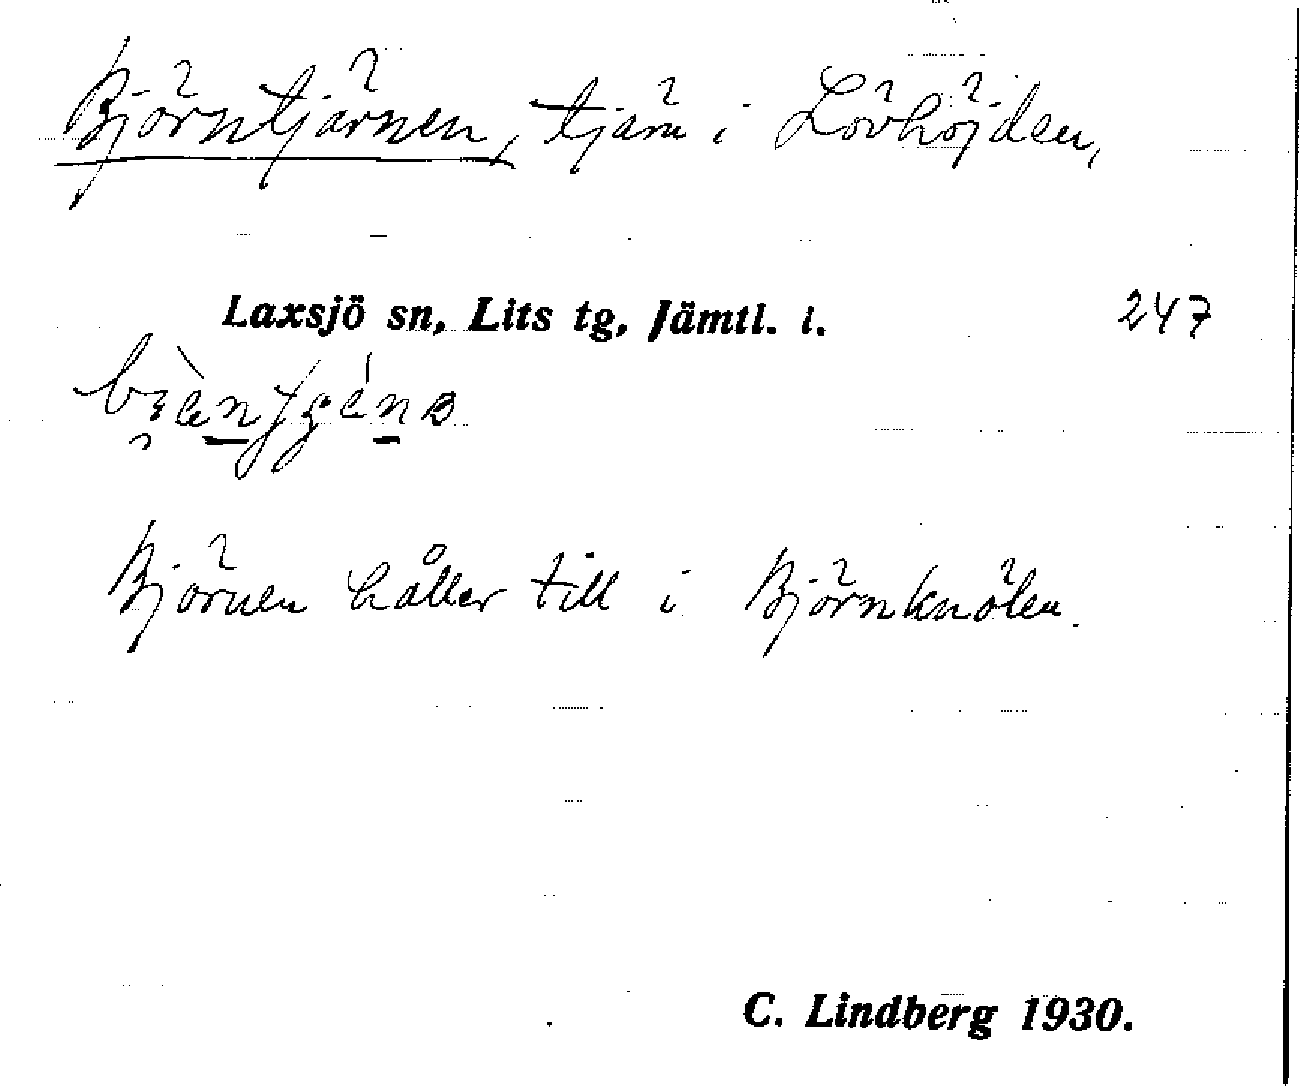 Björntjärnen, tjärn i Lövhöjden,
Laxsjö sn, Lits tg, Jämtl. l. 247
Björnen håller till i Björnknölen.
C. Lindberg 1930.